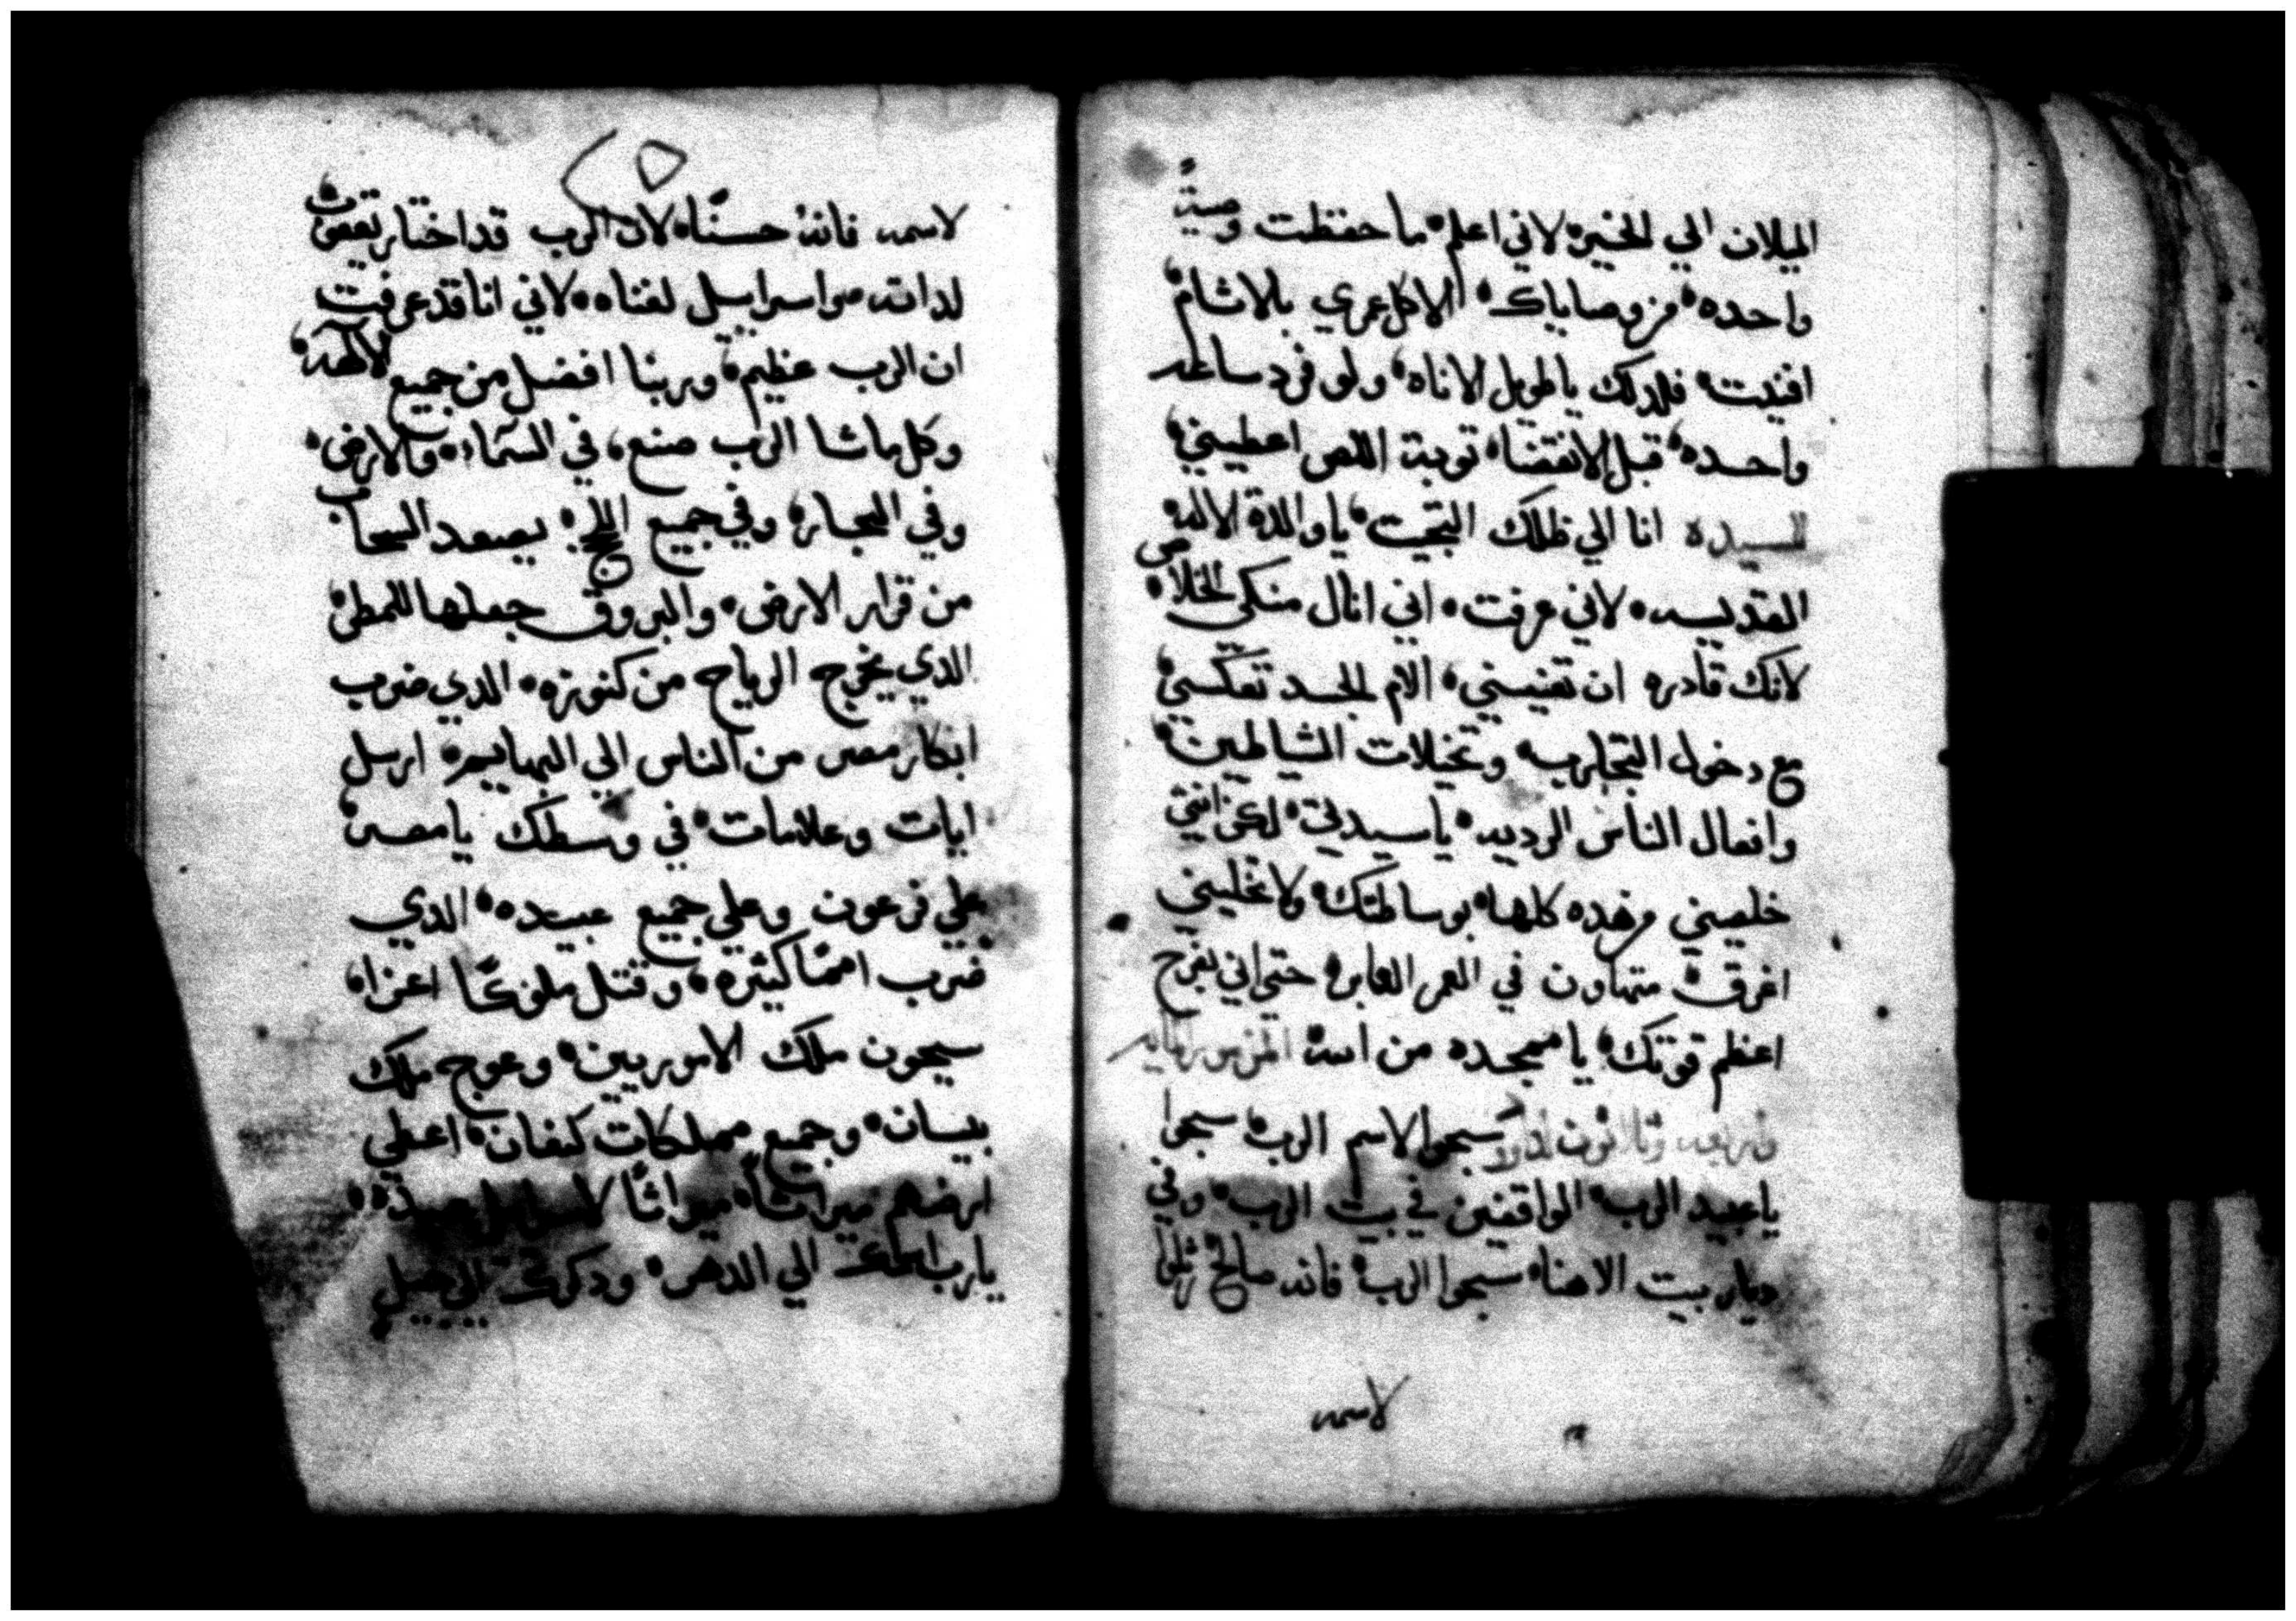 الميلان الي الخير، لاني اعلم، ما حفظت وصيةً
واحده، من وصاياك، الا كل عمري بالاثام،
افنيت، فلدلك يا طويل الاناه، ولو فرد ساعه
واحده، قبل الانقضا، توبة اللص اعطيني،
للسيده انا الي ظلك التجيت، يا والدة الاله،
القديسه، لاني عرفت، اني انال منكي الخلاص،
لانك قادره ان تغيتيني، الام الجسد تعكسني،
مع دخول التجارب، وتخيلات الشياطين،
وافعال الناس الرديه، يا سيدتي، لكن انتي
خلصيني من هده كلها، بوساطتك، ولا تخليني
اغرق، متهاون في العمر العابر، حتي اني بفرح
اعظم قوتك، يا ممجده من ابنك، المزمور المايه
واربعه وثلاثون لداود سبحوا لاسم الرب، سبحوا
يا عبيد الرب، الواقفين في بيت الرب، وفي
ديار بيت الاهنا، سبحوا الرب، فانه صالح، رتلوا
لاسمه
لاسمه فانه حسنًا، لان الرب قد اختار يعقوب،
لداته، واسراييل لغناه، لاني انا قد عرفت
ان الرب عظيم، وربنا افضل من جميع الالهه،
وكل ما شا الرب صنع، في السماء، والارض،
وفي البحار، وفي جميع اللجج، يصعد السحاب،
من قرار الارض، والبروق جعلها للمطر،
الدي يخرج الرياح من كنوزه، الدي ضرب
ابكار مصر من الناس الي البهايم، ارسل
ايات وعلامات، في وسطك يا مصر،
علي فرعون وعلي جميع عبيده، الدي
ضرب اممًا كثيره، وقتل ملوكًا اعزا،
سيحون ملك الاموريين، وعوج ملك
بيسان، وجميع مملكات كنعان، اعطي
ارضهم ميراثًا، ميراثًا لاسراييل عبده،
يا رب اسمك الي الدهر، ودكرك الي جيل